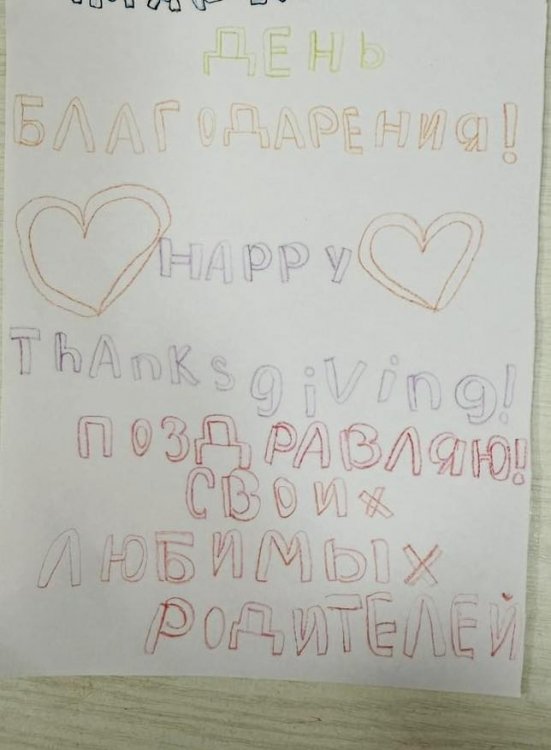 ДЕНЬ
БЛАГОДАРЕНИЯ!
HAPPY
ThAnKsgiVing!
ПОЗДРАВЛЯЮ!
СВОИХ
ЛЮБИМЫХ
РОДИТЕЛЕЙ